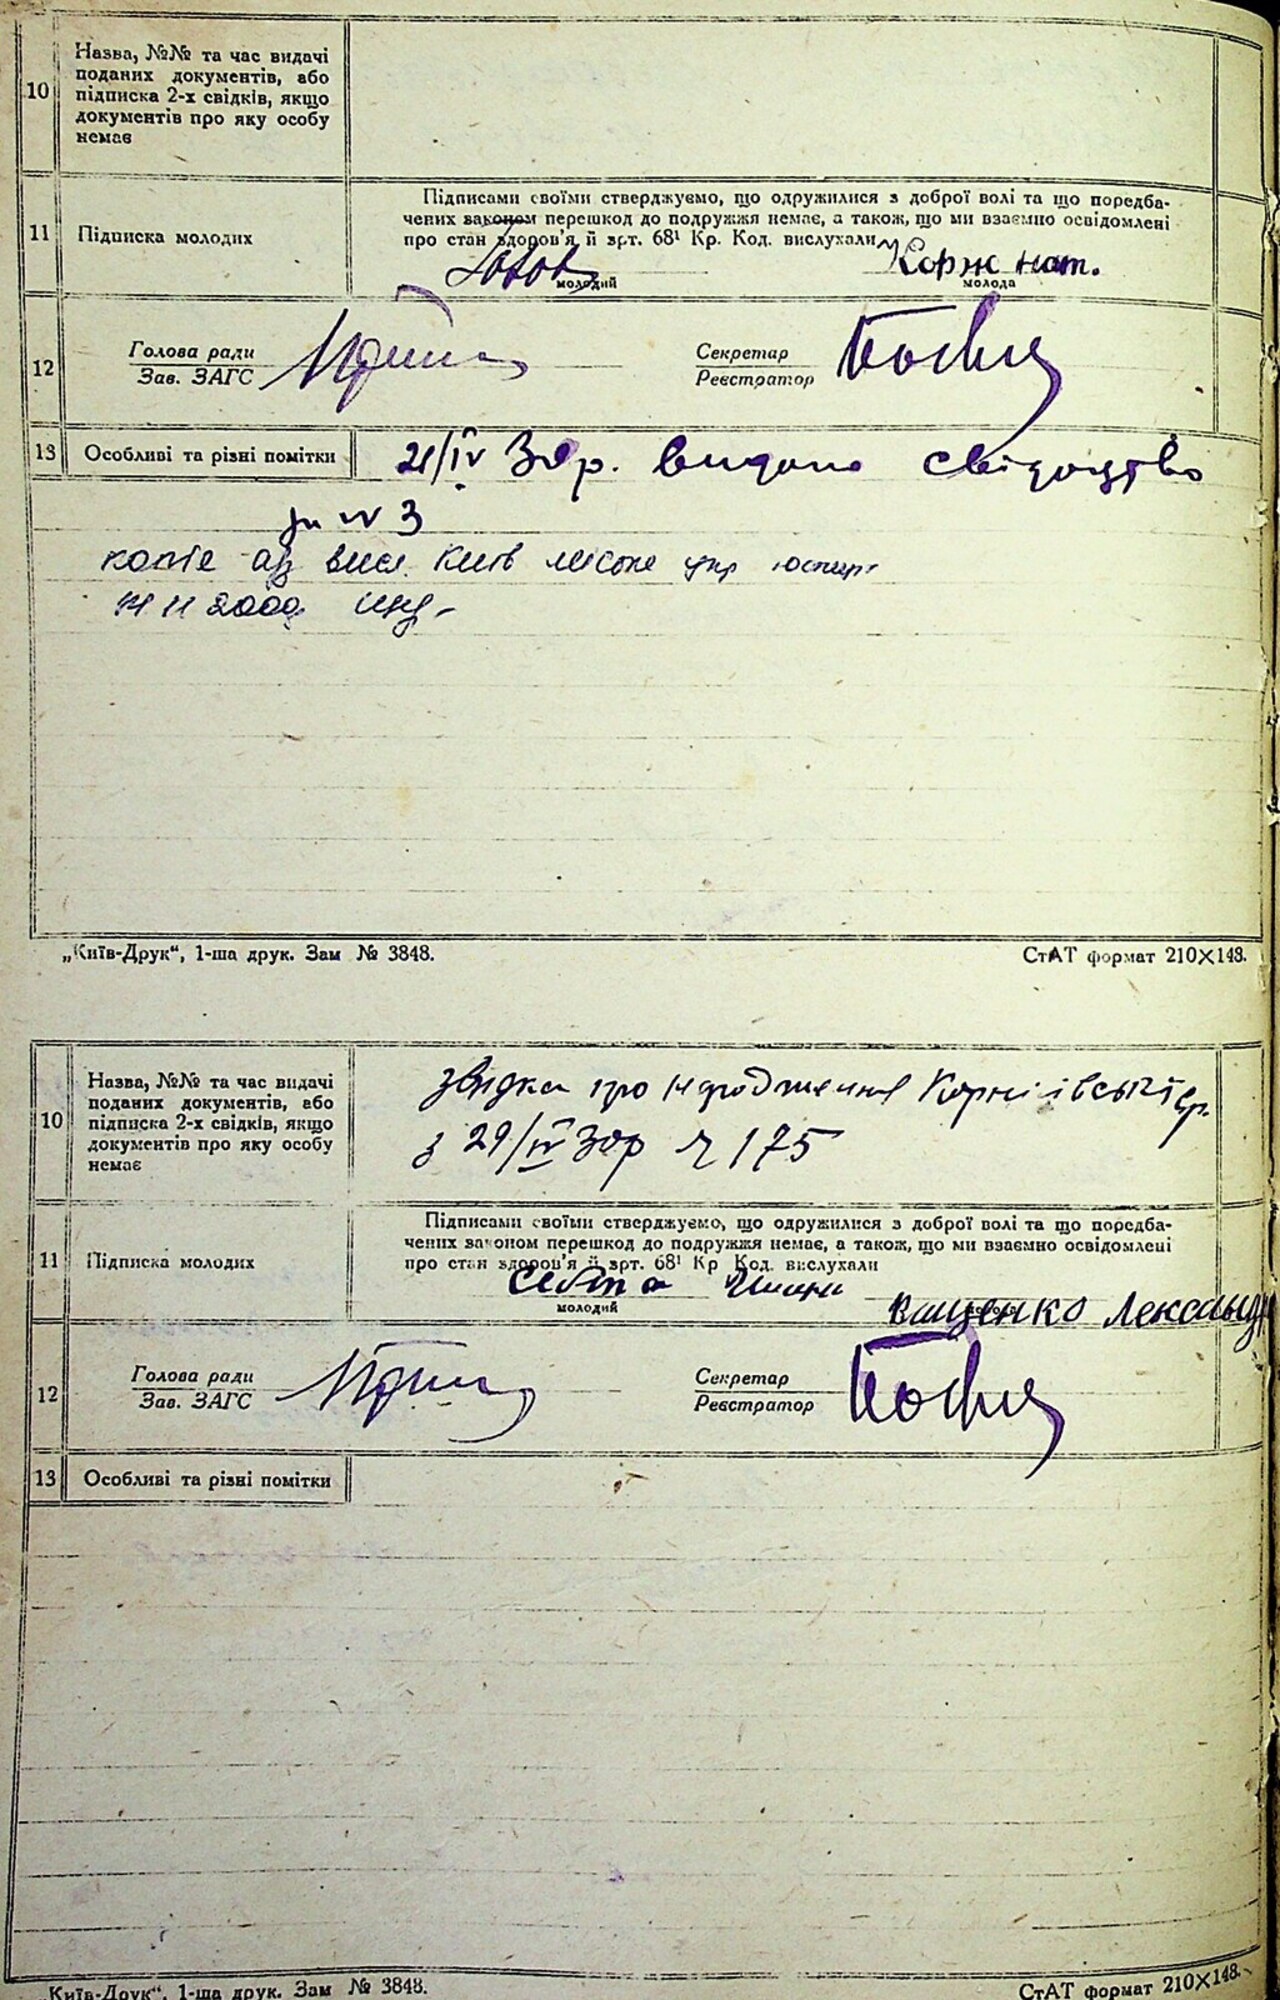 10
Назва, №№ та час видачі
поданих документів, або
підписка 2-х свідків, якщо
документів про яку особу
немає
11
Підписка молодих
Підписами своїми стверджуємо, що одружилися з доброї волі та що передба-
чених законом перешкод до подружжя немає, а також, що ми взаємно освідомлені
про стан здоров'я й арт. 68¹ Кр. Код. вислухали
Корж нат.
молодий
молода
12
Голова ради
Зав. ЗАГС
Секретар
Реєстратор
13
Особливі та різні помітки
21/IV 39р. видано свідоцтво
за № 3
копіє Київ міське упр юстиц
14 11 2000
„Київ-Друк“, 1-ша друк. Зам № 3848.
СтАТ формат 210×148.
10
Назва, №№ та час видачі
поданих документів, або
підписка 2-х свідків, якщо
документів про яку особу
немає
звидка про народження Корніївської ср.
з 29/IV 39р № 175
11
Підписка молодих
Підписами своїми стверджуємо, що одружилися з доброї волі та що передба-
чених законом перешкод до подружжя немає, а також, що ми взаємно освідомлені
про стан здоров'я й арт. 68¹ Кр Код. вислухали
молодий
Ващенко Лександ
12
Голова ради
Зав. ЗАГС
Секретар
Реєстратор
13
Особливі та різні помітки
„Київ-Друк“, 1-ша друк. Зам № 3848.
СтАТ формат 210×148.